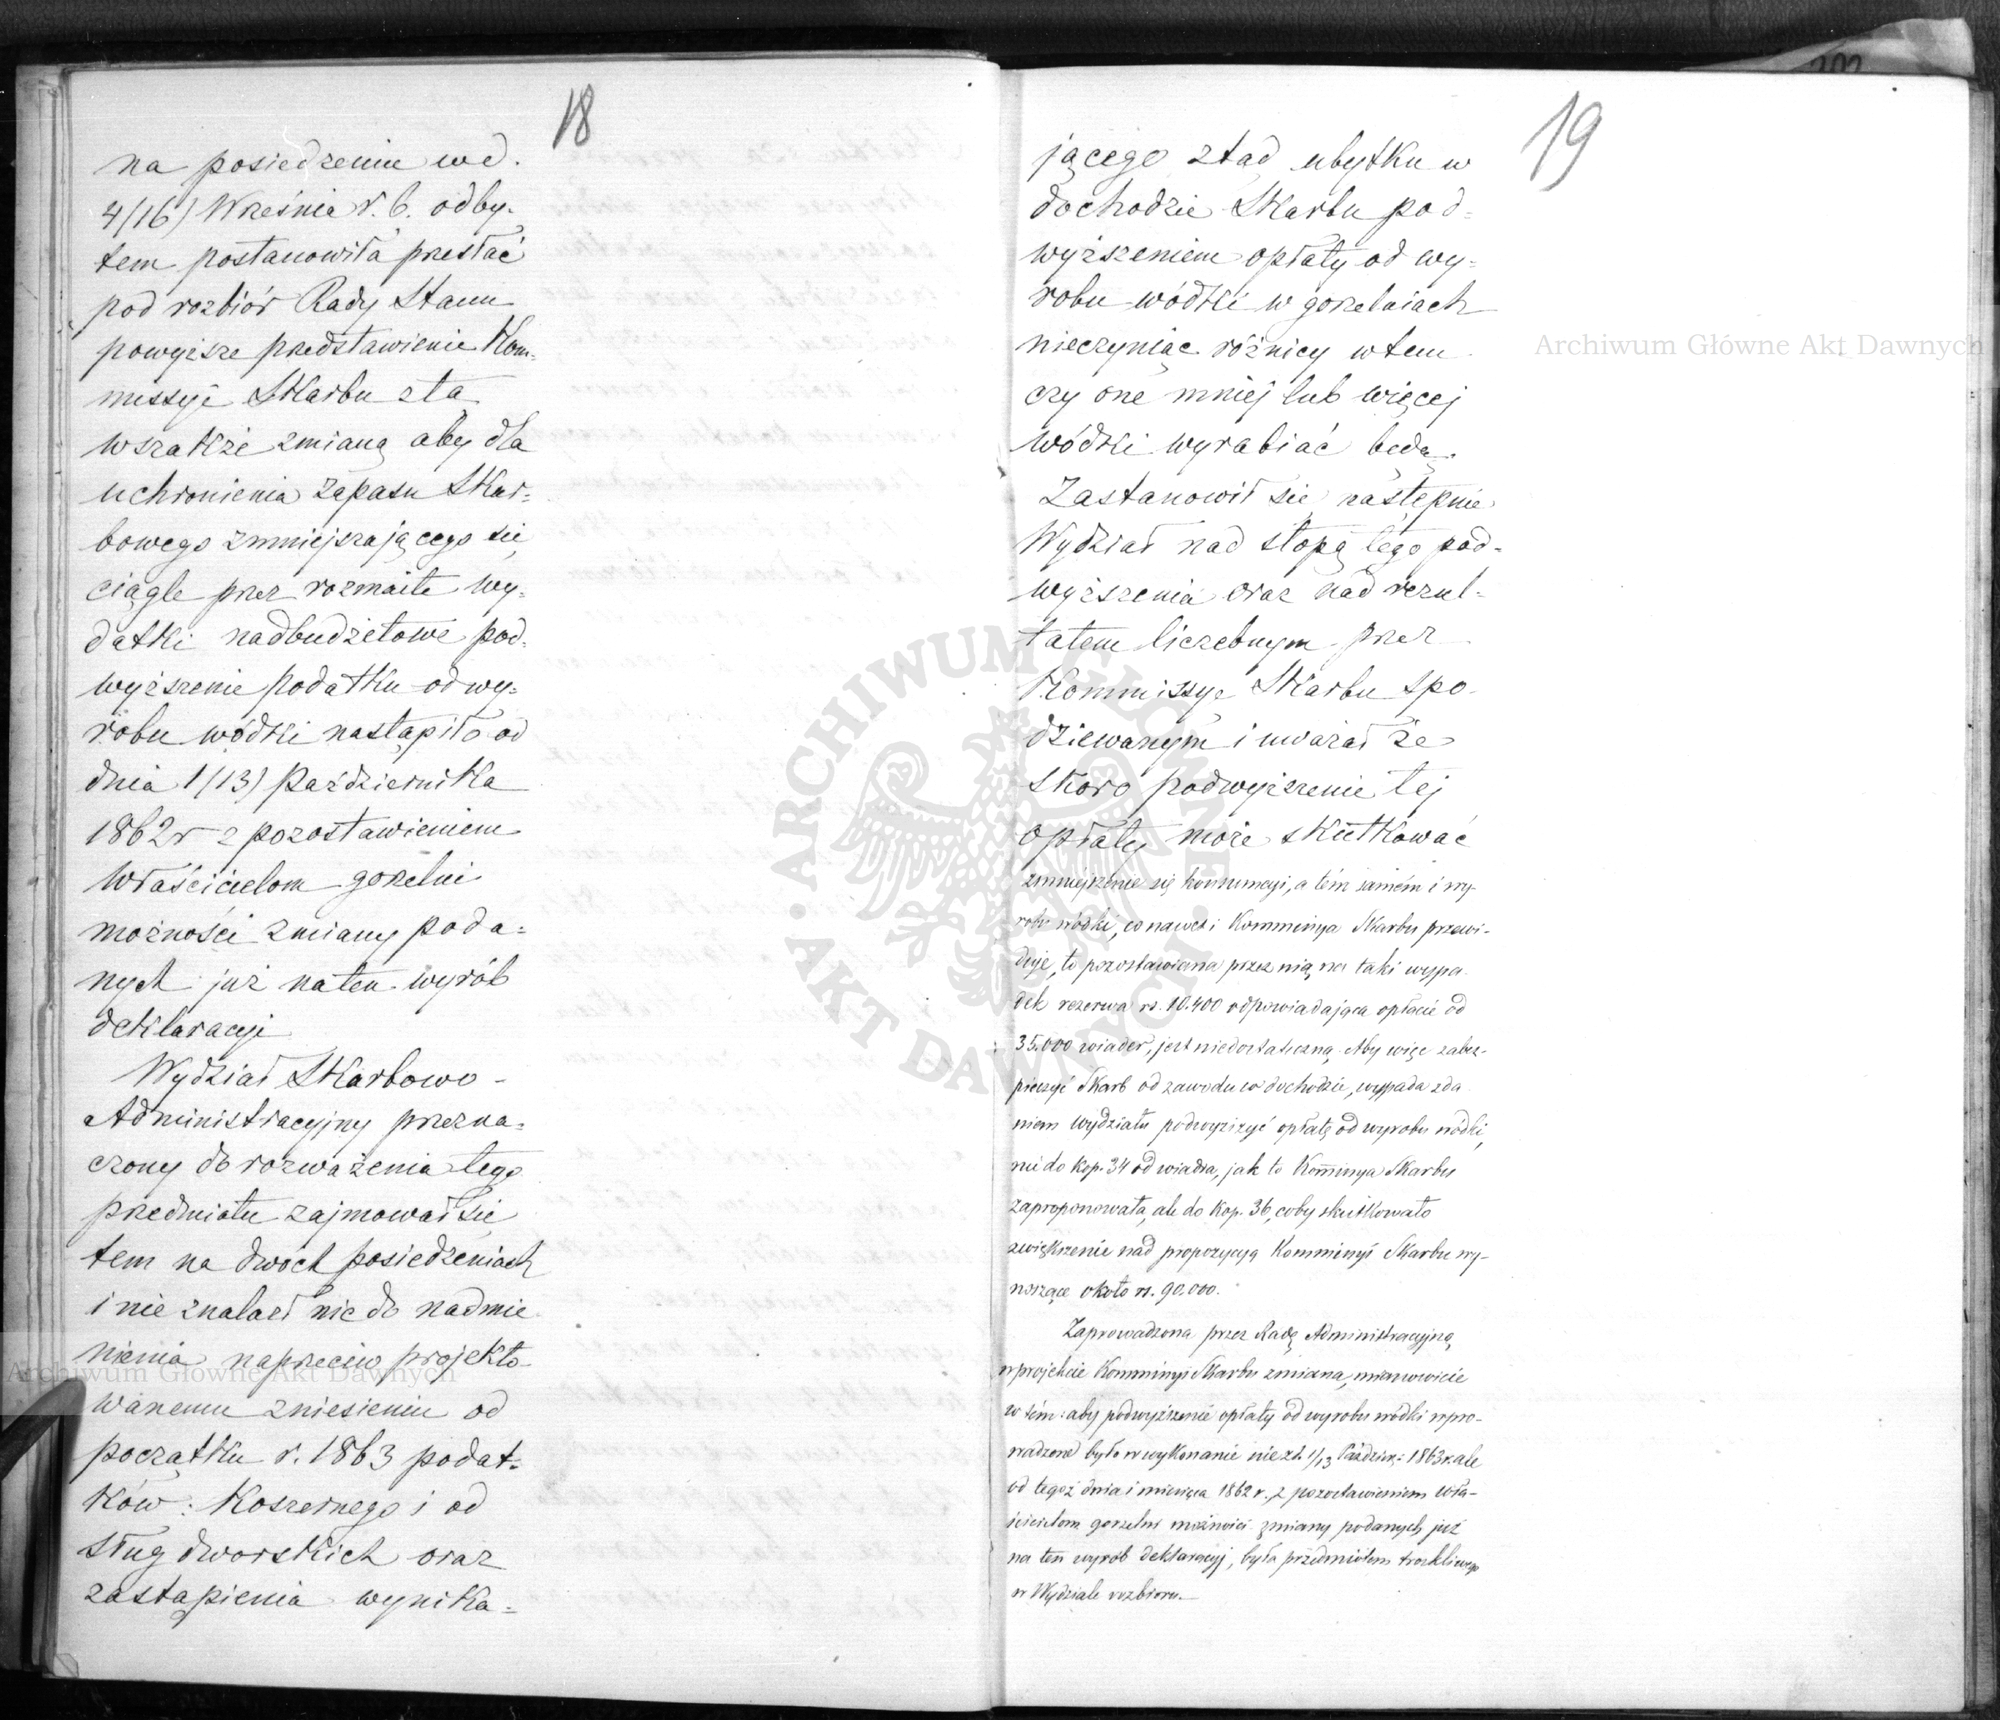 18
na posiedzeniu w d.
4/16) Września r. b. odby-
tem postanowiła przesłać
pod rozbiór Rady Stanu
powyższe przedstawienie Kom-
missyi Skarbu z tą
wszakże zmianą aby dla
uchronienia zapasu Skar-
bowego zmniejszającego się
ciągle przez rozmaite wy-
datki nadbudżetowe pod-
wyższenie podatku od wy-
robu wódki nastąpiło od
dnia 1/13) Października
1862 r z pozostawieniem
właścicielom gorzelni
możności zmiany poda-
nych już na ten wyrób
deklaracyi
Wydział Skarbowo-
Administracyjny przezna-
czony do rozważenia tego
przedmiotu zajmował się
tem na dwóch posiedzeniach
i nie znalazł nic do nadmie
nienia naprzeciw projekto-
wanemu zniesieniu od
początku r. 1863 podat-
ków: Koszernego i od
sług dworskich oraz
zastąpienia wynika-
19
jącego ztąd ubytku w
dochodzie Skarbu pod-
wyższeniem opłaty od wy-
robu wódki w gorzelniach
nieczyniąc różnicy w tem
czy one mniej lub więcej
wódki wyrabiać będą.
Zastanowił się następnie
Wydział nad stopą tego pod-
wyższenia oraz nad rezul-
tatem liczebnym przez
Kommissye Skarbu spo-
dziewanym i uważał że
skoro podwyższenie tej
opłaty może skutkować
zmniejszenie się konsumcyi, a tém samém i wy-
robu wódki, co nawet i Kommissya Skarbu przewi-
duje, to pozostawiona przez nią na taki wypa
dek rezerwa rs. 10.400 odpowiadająca opłacie od
35.000 wiader, jest niedostateczną. Aby więc zabez-
pieczyć Skarb od zawodu w dochodzie, wypada zda
niem Wydziału podwyższyć opłatę od wyrobu wódki,
nie do kop. 34 od wiadra, jak to Kommissya Skarbu
zaproponowała, ale do kop. 36, coby skutkowało
zwiększenie nad propozycyą Kommissyi Skarbu wy-
noszące około rs. 90.000.
Zaprowadzona przez Radę Administracyjną
w projekcie Kommissyi Skarbu zmiana, mianowicie
w tém: aby podwyższenie opłaty od wyrobu wódki wpro-
wadzone było w wykonanie nie z d. 1/13 Paździer: 1863 r. ale
od tegoż dnia i miesiąca 1862 r. z pozostawieniem wła-
ścicielom gorzelni możności zmiany podanych już
na ten wyrób deklaracyj, była przedmiotem troskliwego
w Wydziale rozbioru.
Archiwum Główne Akt Dawnych
Archiwum Główne Akt Dawnych
ARCHIWUM GŁÓWNE
AKT DAWNYCH